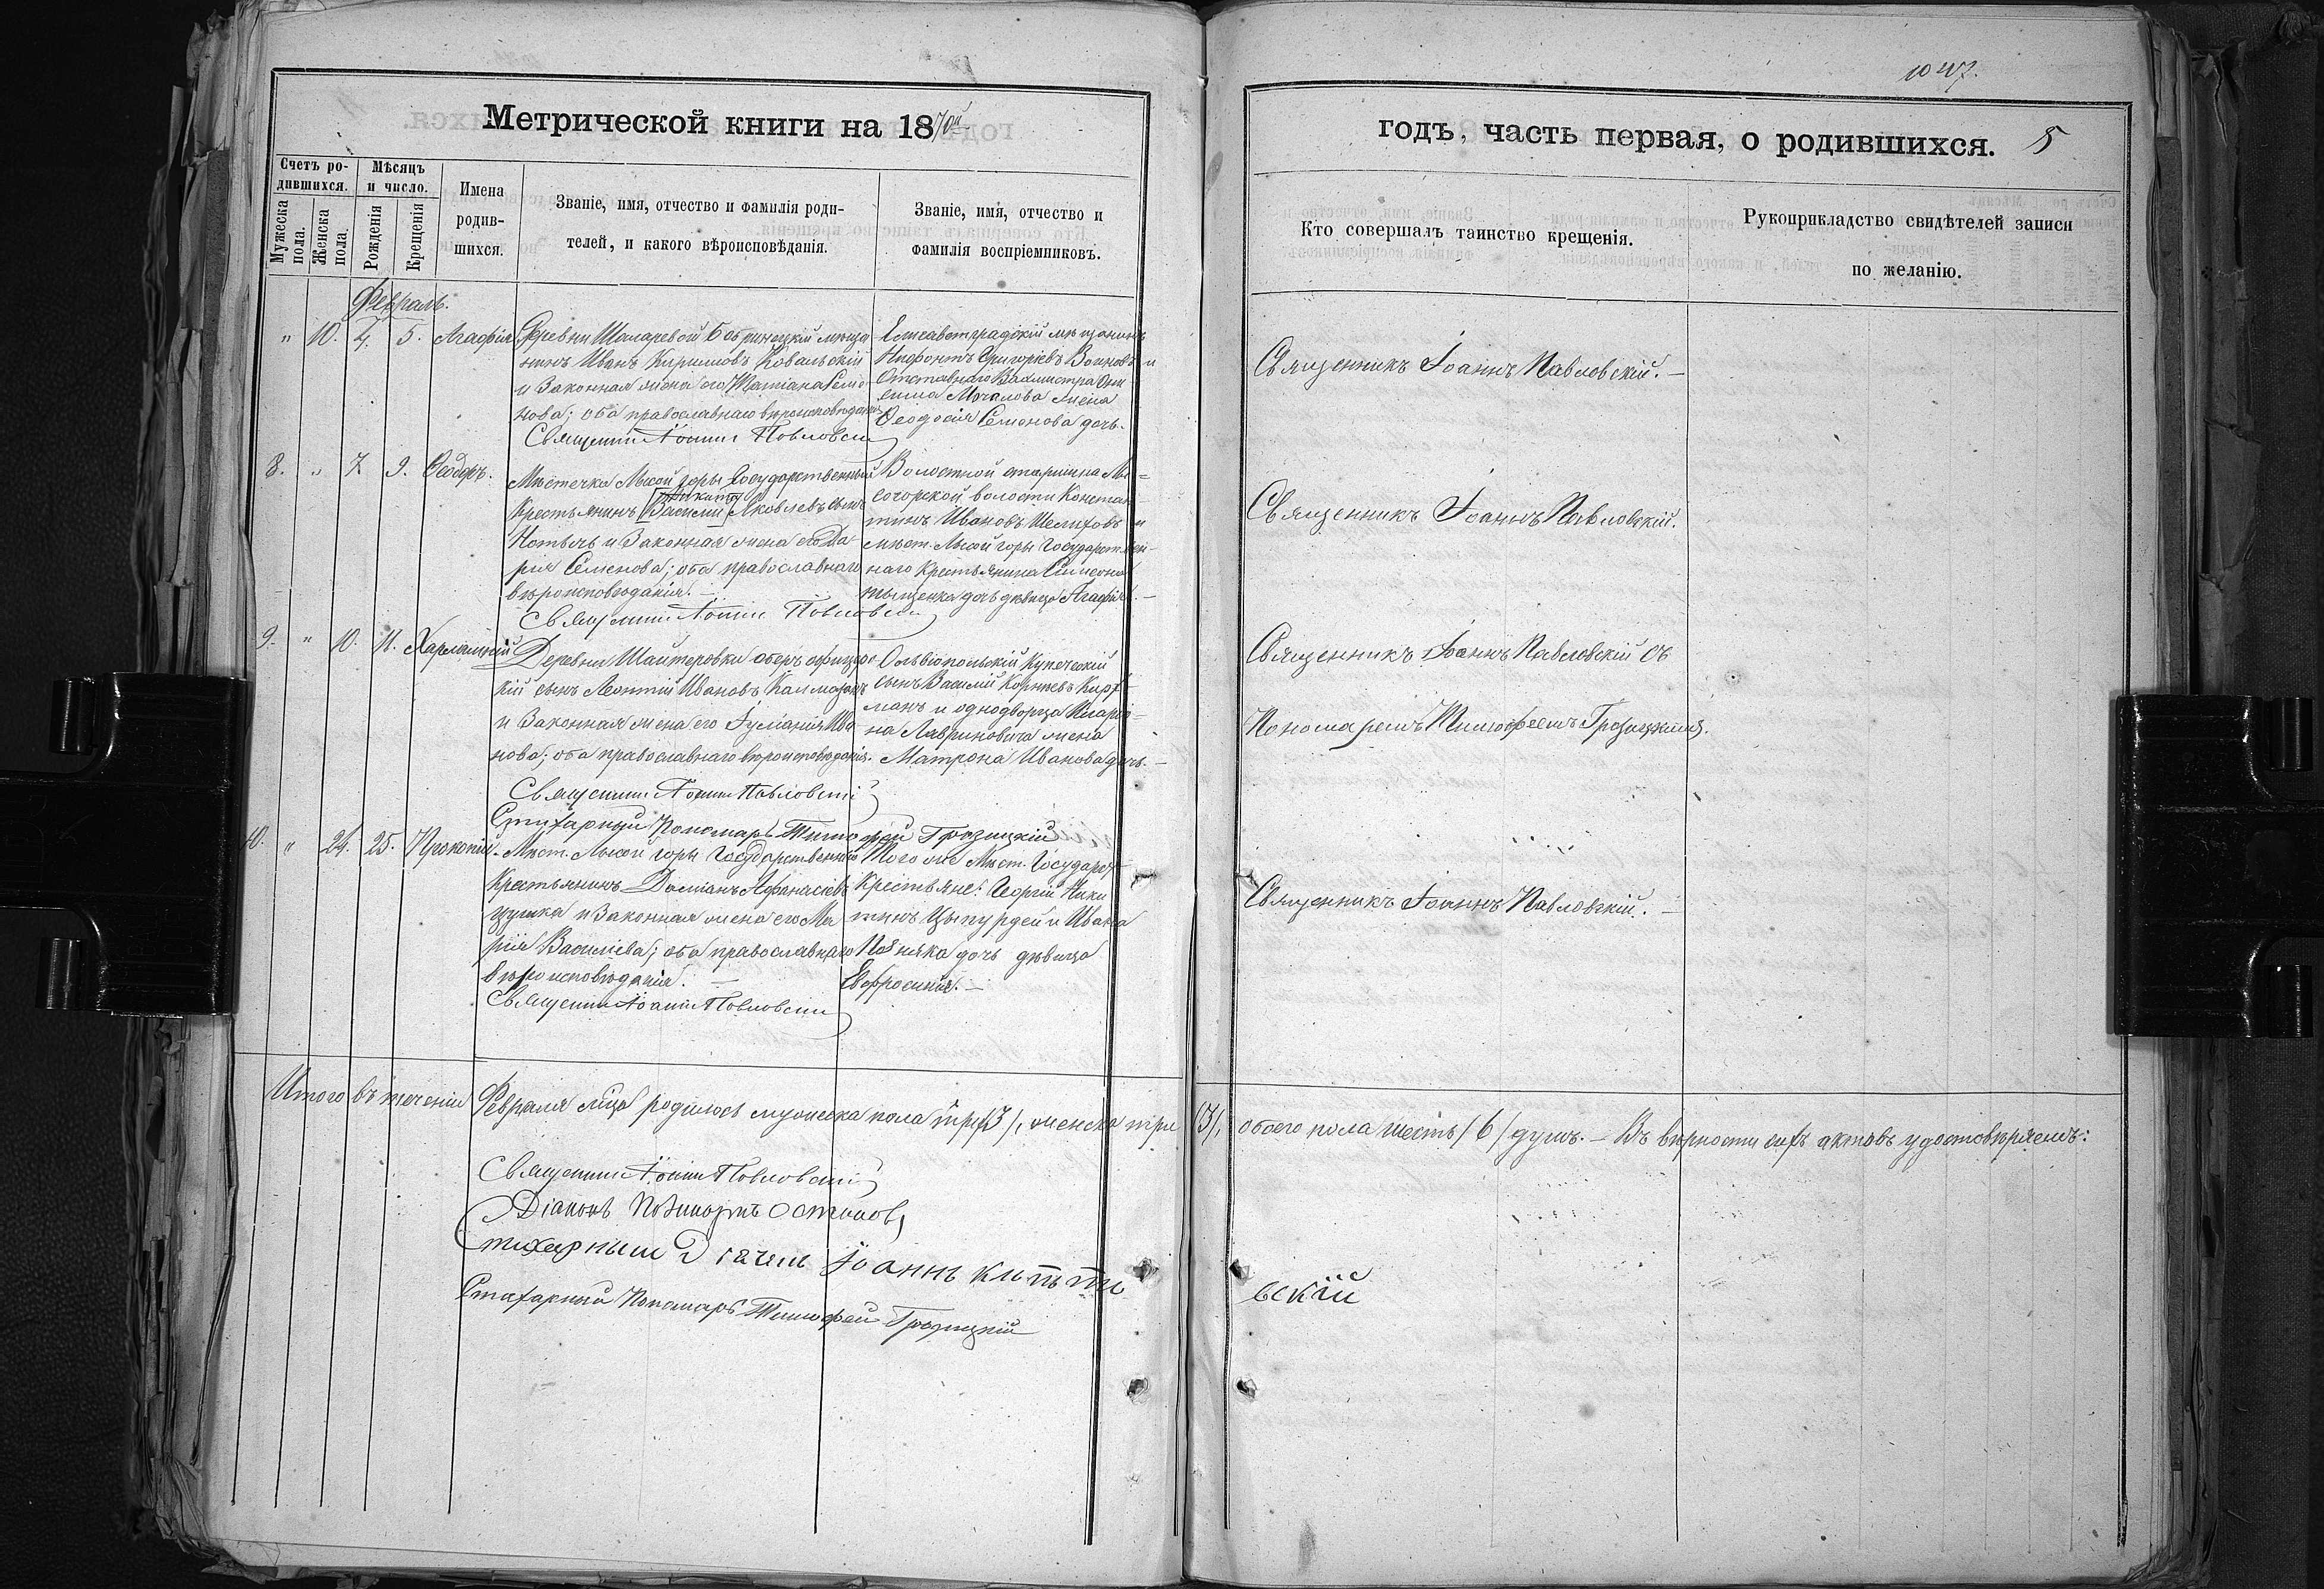 1047.
Метрической книги на 1870й
годъ, часть первая, о родившихся. 5
Счетъ родившихся.
Мужеска пола.
Женска пола.
Мѣсяцъ и число.
Рожденія
Крещенія
Имена родившихся.
Званіе, имя, отчество и фамилія родителей, и какого вѣроисповѣданія.
Званіе, имя, отчество и фамилія воспріемниковъ.
Кто совершалъ таинство крещенія.
Рукоприкладство свидѣтелей записи по желанію.
Февраль.
" 10. 4. 5. Агафія
Деревни Бобринецкій мѣща
нинъ Иванъ Кириловъ Ковальскій
и Законная жена его Татіана Семе
нова; оба православнаго вѣроисповѣданія
Священникъ Іоаннъ Павловскій
Елисаветградскій мѣщанинъ
Нифонтъ Григорьевъ Воиновъ и
Отставнаго Вахмистра Они
сима Мочалова жена
Ѳеодосія Семенова дочь.
Священникъ Іоаннъ Павловскій. —
8. " 7 9. Ѳеодоръ.
Мѣстечка Лысой горы Государственный
Никита
Крестьянинъ [Василій] Яковлевъ сынъ
и Законная жена его Да
рія Семенова; оба православнаго
вѣроисповѣданія. —
Священникъ Іоаннъ Павловскій
Волостной старшина Лы=
согорской волости Констан
тинъ Ивановъ Шелиховъ и
мѣст. Лысой горы Государствен-
наго Крестьянина Симеона
дочь дѣвица Агафія. —
Священникъ Іоаннъ Павловскій.
9. " 10. 11. Харлампій
Деревни Шайтеровки оберъ офицерс
кій сынъ Леонтій Ивановъ
и Законная жена его Іуліанія Ива
нова; оба православнаго вѣроисповѣданія.
Священникъ Іоаннъ Павловскій
Стихарный Пономарь Тимофей Грозицкій
Ольвіопольскій Купеческій
сынъ Василій Корнѣевъ
и однодворца Иларіо=
на Лавриновича жена
Матрона Иванова дочь. —
Священникъ Іоаннъ Павловскій съ
Пономаремъ Тимофеемъ Грозицкимъ.
10. " 24. 25. Прокопій.
Мѣст. Лысой горы Государственный
Крестьянинъ Доміанъ Афанасіевъ
и Законная жена его Ма
рія Василіева; оба православнаго
вѣроисповѣданія. —
Священникъ Іоаннъ Павловскій
Того же Мѣст. Государст
Крестьяне: Георгій Ники
тинъ Цыпурдей и Ивана
Позняка дочь дѣвица
Евфросинія. —
Священникъ Іоаннъ Павловскій. —
Итого въ теченіи Февраля мца родилось мужеска пола три /3/, женска три /3/, обоего пола шесть /6/ душъ. — Въ вѣрности сихъ актовъ удостовѣряемъ:
Священникъ Іоаннъ Павловскій
Діаконъ Остиковъ
Стихарный Дьячекъ Іоаннъ вскій
Стихарный Пономарь Тимофей Грозицкій